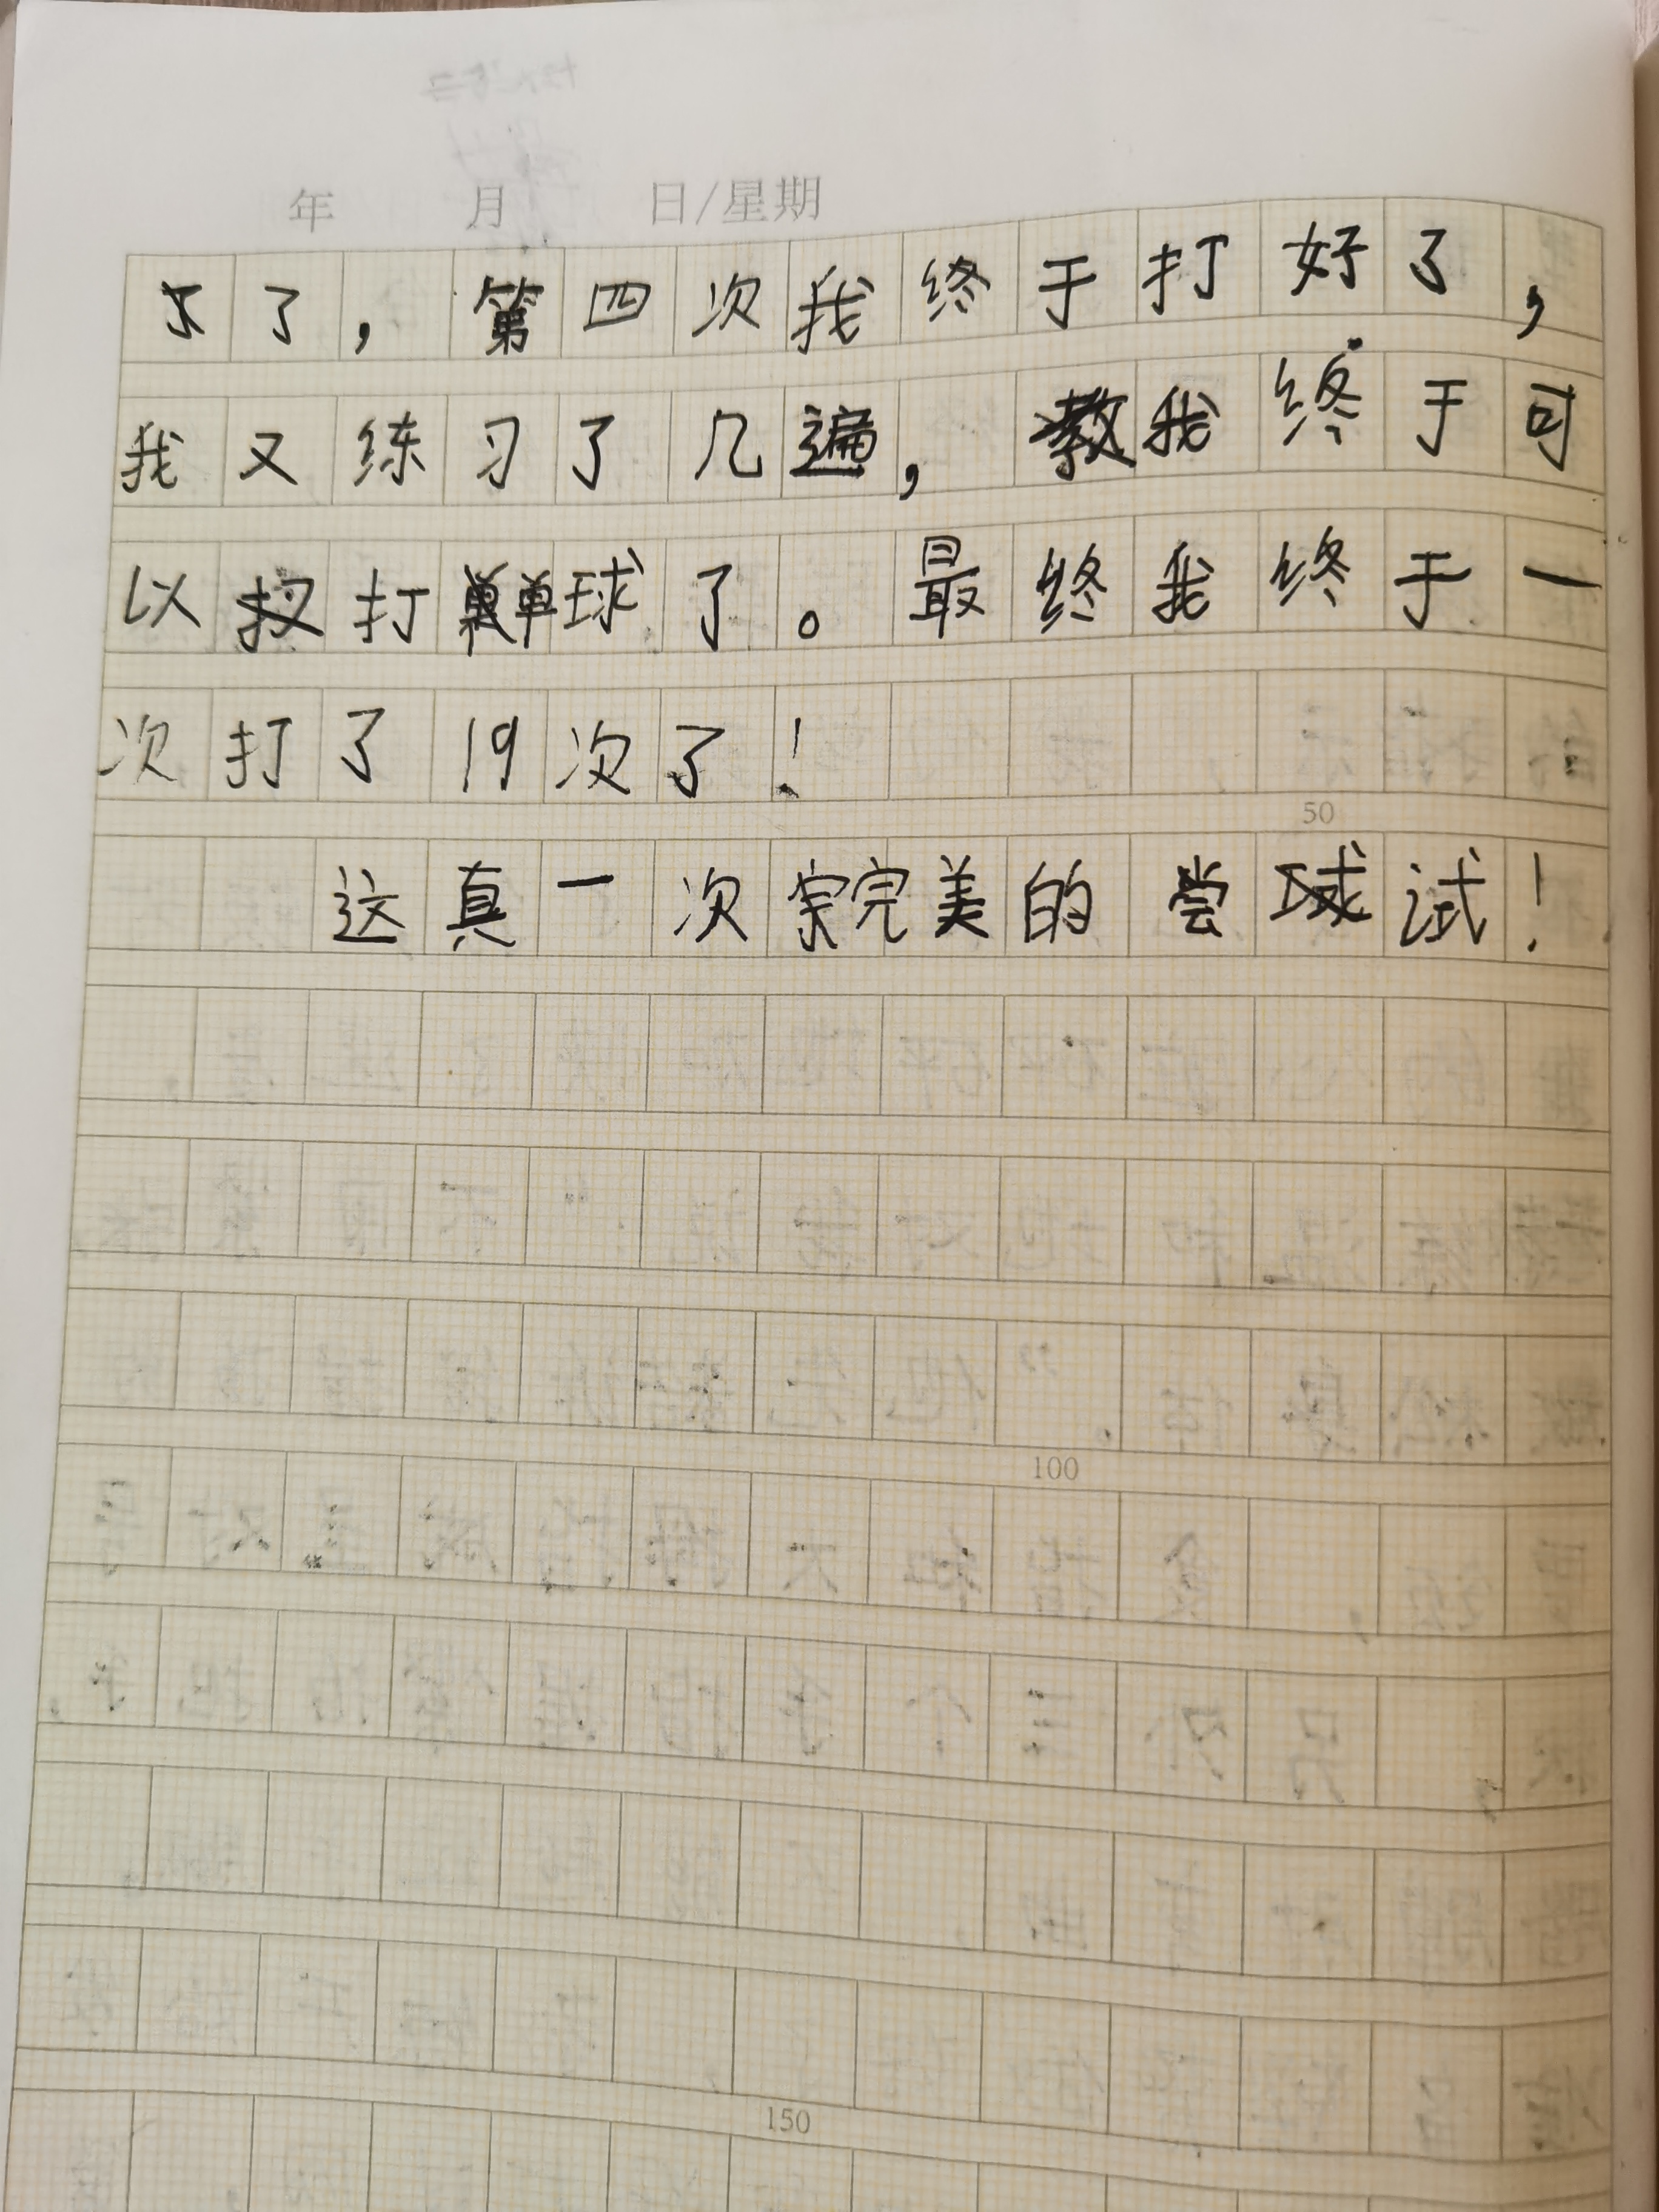 年 月 日/星期
了，第四次我终于打好了，
我又练习了几遍，我终于可
以打单球了。最终我终于一
次打了19次了！
50
这真一次完美的尝试！
100
150